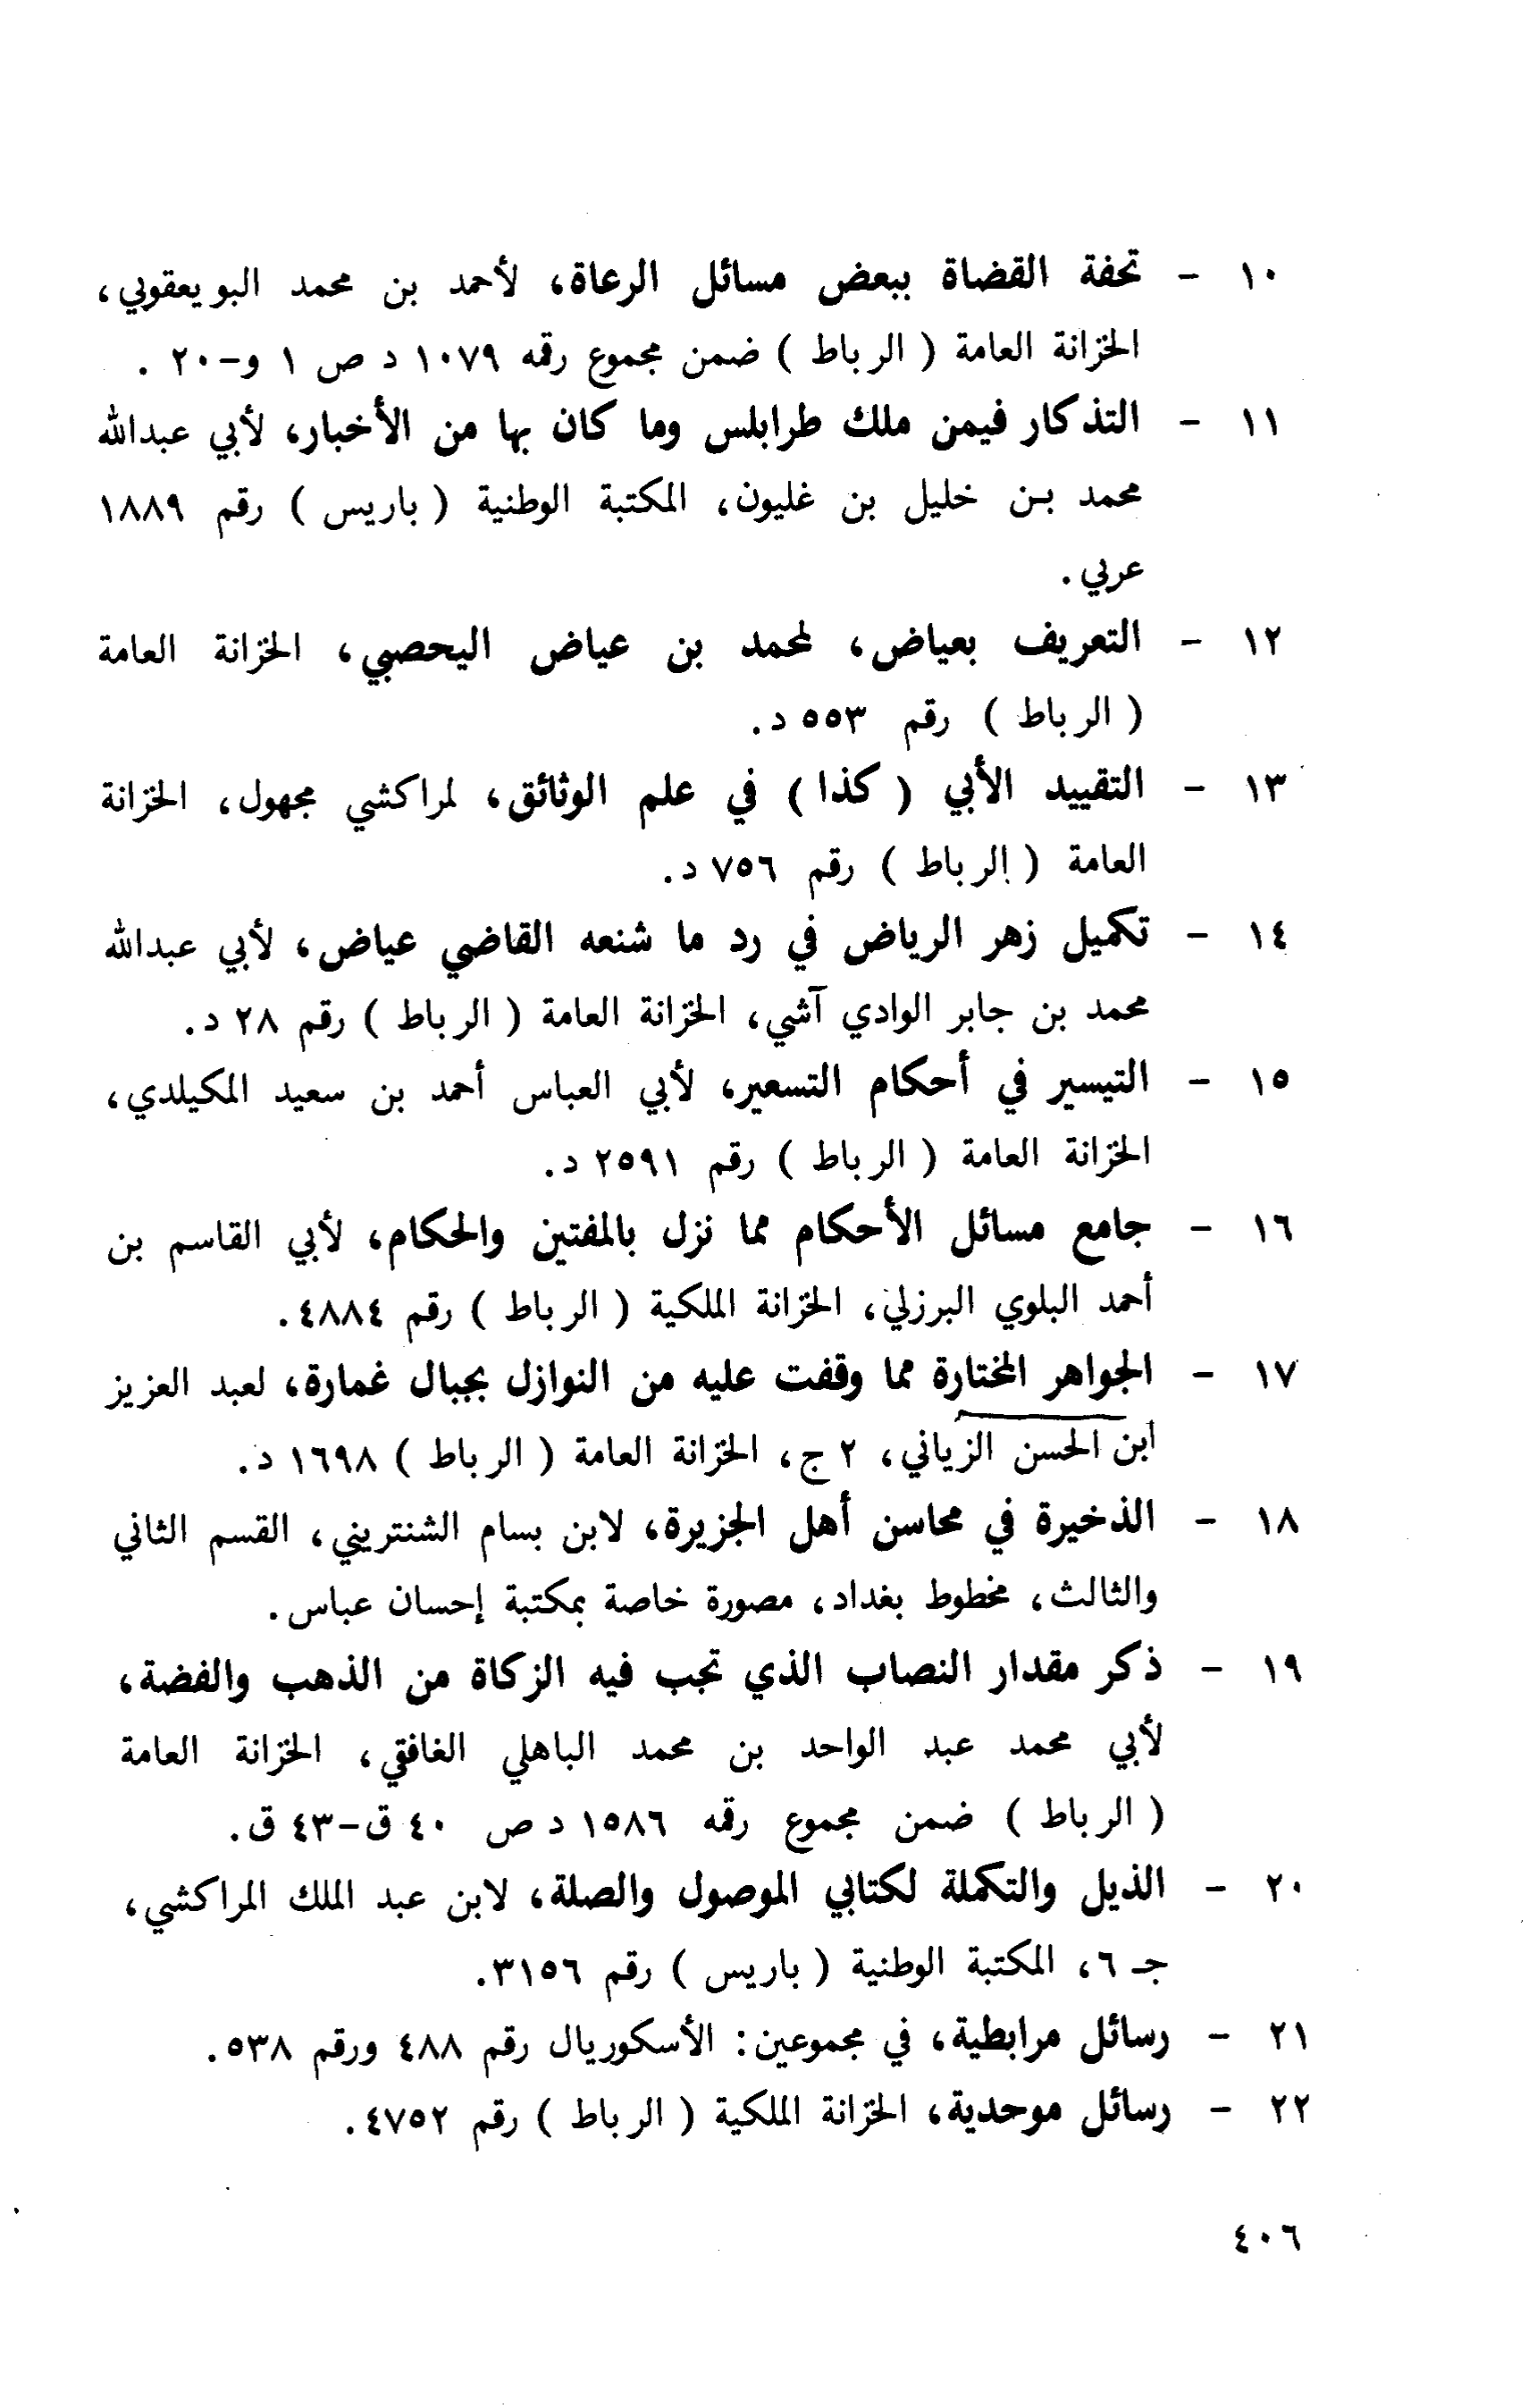 ١٠ - تحفة القضاة ببعض مسائل الرعاة، لأحمد بن محمد البويعقوبي،
الخزانة العامة ( الرباط ) ضمن مجموع رقمه ١٠٧٩ د ص ١ و-٢٠ .
١١ - التذكار فيمن ملك طرابلس وما كان بها من الأخبار، لأبي عبدالله
محمد بن خليل بن غليون، المكتبة الوطنية ( باريس ) رقم ١٨٨٩
عربي.
١٢ - التعريف بعياض، لمحمد بن عياض اليحصبي، الخزانة العامة
( الرباط ) رقم ٥٥٣ د.
١٣ - التقييد الأبي ( كذا ) في علم الوثائق، لمراكشي مجهول، الخزانة
العامة ( الرباط ) رقم ٧٥٦ د.
١٤ - تكميل زهر الرياض في رد ما شنعه القاضي عياض، لأبي عبدالله
محمد بن جابر الوادي آشي، الخزانة العامة ( الرباط ) رقم ٢٨ د.
١٥ - التيسير في أحكام التسعير، لأبي العباس أحمد بن سعيد المكيلدي،
الخزانة العامة ( الرباط ) رقم ٢٥٩١ د.
١٦ - جامع مسائل الأحكام مما نزل بالمفتين والحكام، لأبي القاسم بن
أحمد البلوي البرزلي، الخزانة الملكية ( الرباط ) رقم ٤٨٨٤.
١٧ - الجواهر المختارة مما وقفت عليه من النوازل بجبال غمارة، لعبد العزيز
ابن الحسن الزياني، ٢ ج، الخزانة العامة ( الرباط ) ١٦٩٨ د.
١٨ - الذخيرة في محاسن أهل الجزيرة، لابن بسام الشنتريني، القسم الثاني
والثالث، مخطوط بغداد، مصورة خاصة بمكتبة إحسان عباس.
١٩ - ذكر مقدار النصاب الذي تجب فيه الزكاة من الذهب والفضة،
لأبي محمد عبد الواحد بن محمد الباهلي الغافقي، الخزانة العامة
( الرباط ) ضمن مجموع رقمه ١٥٨٦ د ص ٤٠ ق-٤٣ ق.
٢٠ - الذيل والتكملة لكتابي الموصول والصلة، لابن عبد الملك المراكشي،
جـ ٦، المكتبة الوطنية ( باريس ) رقم ٣١٥٦.
٢١ - رسائل مرابطية، في مجموعين: الأسكوريال رقم ٤٨٨ ورقم ٥٣٨.
٢٢ - رسائل موحدية، الخزانة الملكية ( الرباط ) رقم ٤٧٥٢.
٤٠٦